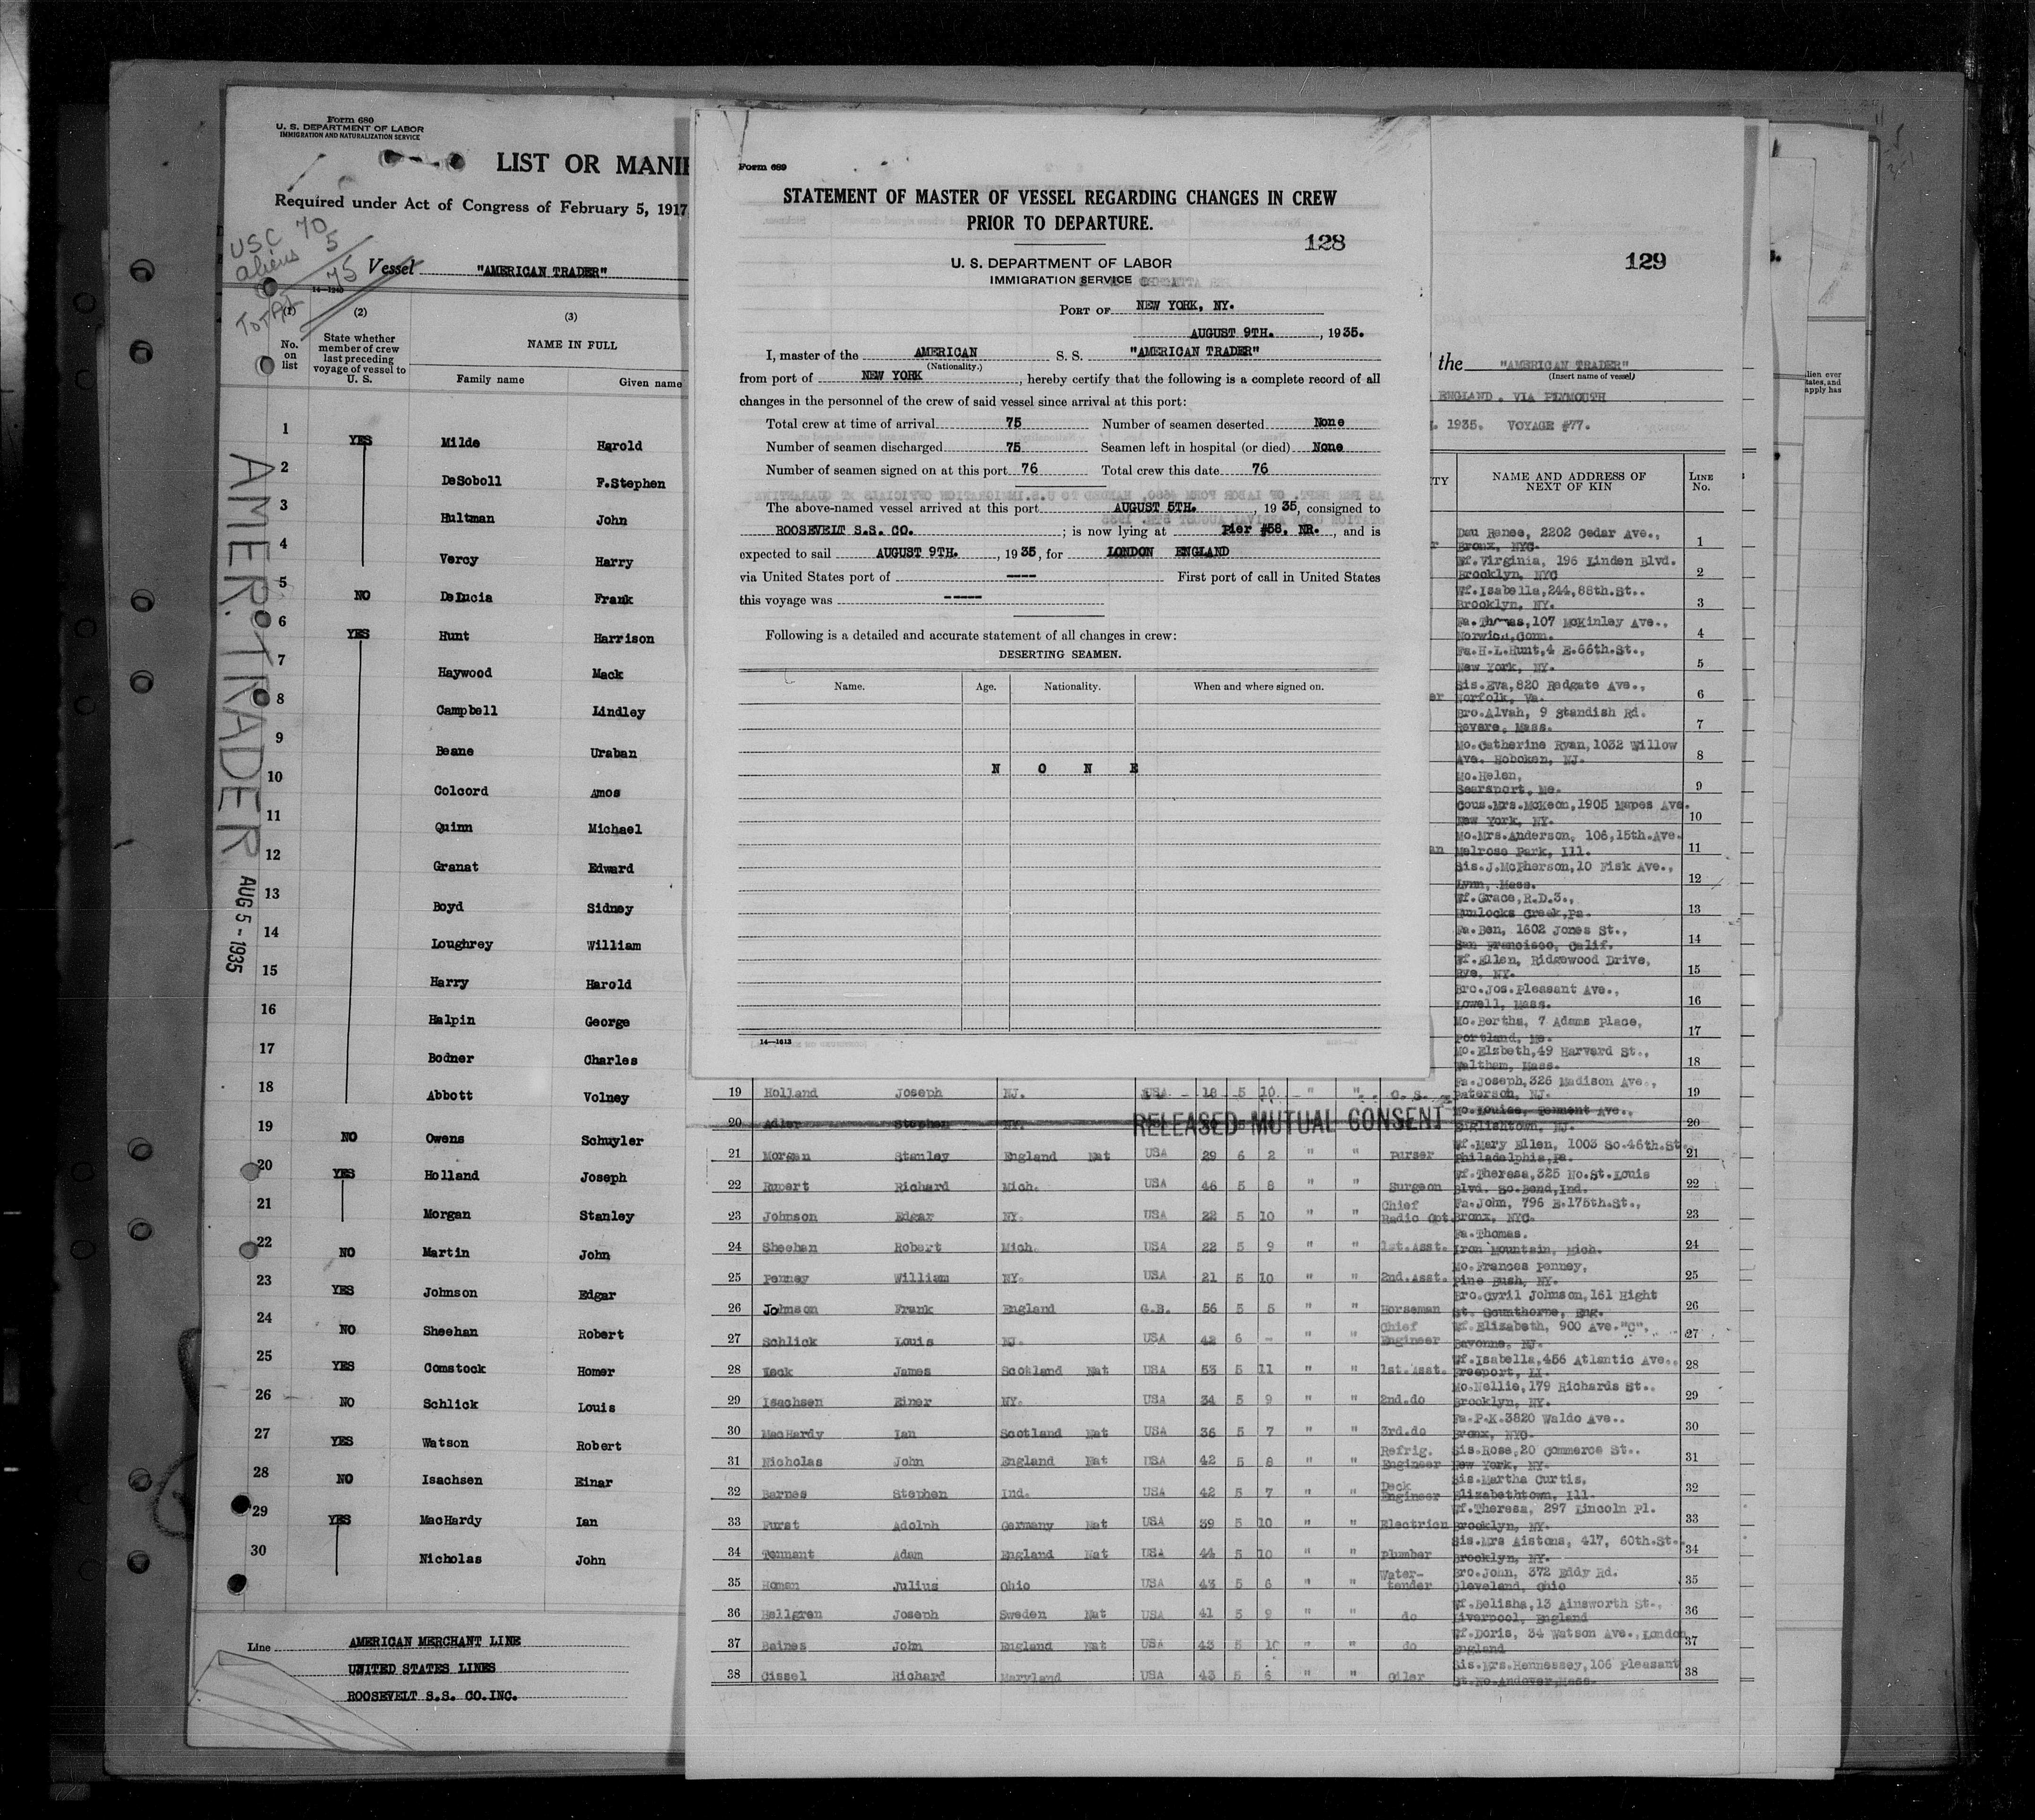 Form 680
U. S. DEPARTMENT OF LABOR
IMMIGRATION AND NATURALIZATION SERVICE
LIST OR MANIF
Required under Act of Congress of February 5, 1917
USC 70
aliens 5
TOTAL 75
Vessel "AMERICAN TRADER"
14—1240
(1) (2) (3)
No. on list
State whether member of crew last preceding voyage of vessel to U. S.
NAME IN FULL
Family name Given name
AMER. TRADER AUG 5 - 1935
1 YES Milde Harold
2 DeSoboll F.Stephen
3 Hultman John
4 Vercy Harry
5 NO DeLucia Frank
6 YES Hunt Harrison
7 Haywood Mack
8 Campbell Lindley
9 Beane Uraban
10 Colcord Amos
11 Quinn Michael
12 Granat Edward
13 Boyd Sidney
14 Loughrey William
15 Harry Harold
16 Halpin George
17 Bodner Charles
18 Abbott Volney
19 NO Owens Schuyler
20 YES Holland Joseph
21 Morgan Stanley
22 NO Martin John
23 YES Johnson Edgar
24 NO Sheehan Robert
25 YES Comstock Homer
26 NO Schlick Louis
27 YES Watson Robert
28 NO Isachsen Einar
29 YES MacHardy Ian
30 Nicholas John
Line AMERICAN MERCHANT LINE
UNITED STATES LINES
ROOSEVELT S.S. CO.INC.
Form 689
STATEMENT OF MASTER OF VESSEL REGARDING CHANGES IN CREW
PRIOR TO DEPARTURE.
128
U. S. DEPARTMENT OF LABOR
IMMIGRATION SERVICE
PORT OF NEW YORK, NY.
AUGUST 9TH. , 1935.
I, master of the AMERICAN S. S. "AMERICAN TRADER"
(Nationality.)
from port of NEW YORK , hereby certify that the following is a complete record of all
changes in the personnel of the crew of said vessel since arrival at this port:
Total crew at time of arrival 75 Number of seamen deserted None
Number of seamen discharged 75 Seamen left in hospital (or died) None
Number of seamen signed on at this port 76 Total crew this date 76
The above-named vessel arrived at this port AUGUST 5TH. , 1935, consigned to
ROOSEVELT S.S. CO. ; is now lying at Pier #58, NR. , and is
expected to sail AUGUST 9TH. , 1935, for LONDON ENGLAND
via United States port of ---- First port of call in United States
this voyage was -----
Following is a detailed and accurate statement of all changes in crew:
DESERTING SEAMEN.
Name. Age. Nationality. When and where signed on.
N O N E
14—1613
129
the "AMERICAN TRADER"
(Insert name of vessel)
ENGLAND. VIA PLYMOUTH
1935. VOYAGE #77.
NAME AND ADDRESS OF NEXT OF KIN LINE No.
Dau Renee, 2202 Cedar Ave., Bronx, NYC. 1
Wf.Virginia, 196 Linden Blvd. Brooklyn, NYC 2
Wf.Isabella,244,88th.St.. Brooklyn, NY. 3
Fa.Thomas,107 McKinley Ave., Norwich,Conn. 4
Fa.H.L.Hunt,4 E.66th.St., New York, NY. 5
Sis.Eva,820 Redgate Ave., Norfolk, Va. 6
Bro.Alvah, 9 Standish Rd. Revere, Mass. 7
Mo.Catherine Ryan,1032 Willow Ave. Hoboken, NJ. 8
Mo.Helen, Searsport, Me. 9
Cous.Mrs.McKeon,1905 Mapes Ave. New York, NY. 10
Mo.Mrs.Anderson, 106,15th.Ave. Melrose Park, Ill. 11
Sis.J.McPherson,10 Fisk Ave., Lynn, Mass. 12
Wf.Grace,R.D.3., Hunlocks Creek,Pa. 13
Fa.Ben, 1602 Jones St., San Francisco, Calif. 14
Wf.Ellen, Ridgewood Drive, Rye, NY. 15
Bro.Jos.Pleasant Ave., Lowell, Mass. 16
Mo.Bertha, 7 Adams Place, Portland, Me. 17
Mo.Elzbeth,49 Harvard St., Waltham, Mass. 18
19 Holland Joseph NJ. USA 18 5 10 " " O. S. Fa.Joseph,326 Madison Ave., Paterson, NJ. 19
20 Adler Stephen NY. RELEASED MUTUAL CONSENT Mo.Louise, Tennent Ave., Englishtown, NJ. 20
21 Morgan Stanley England Nat USA 29 6 2 " " Purser Wf.Mary Ellen, 1003 So.46th.St Philadelphia,Pa. 21
22 Rupert Richard Mich. USA 46 5 8 " " Surgeon Wf.Theresa,325 No.St.Louis Blvd. So.Bend,Ind. 22
23 Johnson Edgar NY. USA 22 5 10 " " Chief Radio Opt. Fa.John, 796 E.175th.St., Bronx, NYC. 23
24 Sheehan Robert Mich. USA 22 5 9 " " 1st.Asst. Fa.Thomas. Iron Mountain, Mich. 24
25 Penney William NY. USA 21 5 10 " " 2nd.Asst. Mo.Frances Penney, Pine Bush, NY. 25
26 Johnson Frank England G.B. 56 5 5 " " Horseman Bro.Cyril Johnson,161 Hight St. Scunthorpe, Eng. 26
27 Schlick Louis NJ. USA 42 6 - " " Chief Engineer Wf.Elizabeth, 900 Ave."C", Bayonne, NJ. 27
28 Weck James Scotland Nat USA 53 5 11 " " 1st.Asst. Wf.Isabella,456 Atlantic Ave., Freeport, LI. 28
29 Isachsen Einer NY. USA 34 5 9 " " 2nd.do Mo.Nellie,179 Richards St., Brooklyn, NY. 29
30 MacHardy Ian Scotland Nat USA 36 5 7 " " 3rd.do Fa.P.K.3820 Waldo Ave.. Bronx, NYC. 30
31 Nicholas John England Nat USA 42 5 8 " " Refrig. Engineer Sis.Rose,20 Commerce St.. New York, NY. 31
32 Barnes Stephen Ind. USA 42 5 7 " " Deck Engineer Sis.Martha Curtis, Elizabethtown, Ill. 32
33 Furst Adolph Germany Nat USA 39 5 10 " " Electricn Wf.Theresa, 297 Lincoln Pl. Brooklyn, NY. 33
34 Tennant Adam England Nat USA 44 5 10 " " Plumber Sis.Mrs Aistons, 417, 60th.St. Brooklyn, NY. 34
35 Homan Julius Ohio USA 43 5 6 " " Water-tender Bro.John, 372 Eddy Rd. Cleveland, Ohio 35
36 Hellgren Joseph Sweden Nat USA 41 5 9 " " do Wf.Delisha,13 Ainsworth St., Liverpool, England 36
37 Baines John England Nat USA 43 5 10 " " do Wf.Doris, 34 Watson Ave.,London England 37
38 Cissel Richard Maryland USA 43 5 6 " " Oiler Sis.Mrs.Hennessey,106 Pleasant St.No.Andover,Mass. 38
lien ever
tates, and
apply has